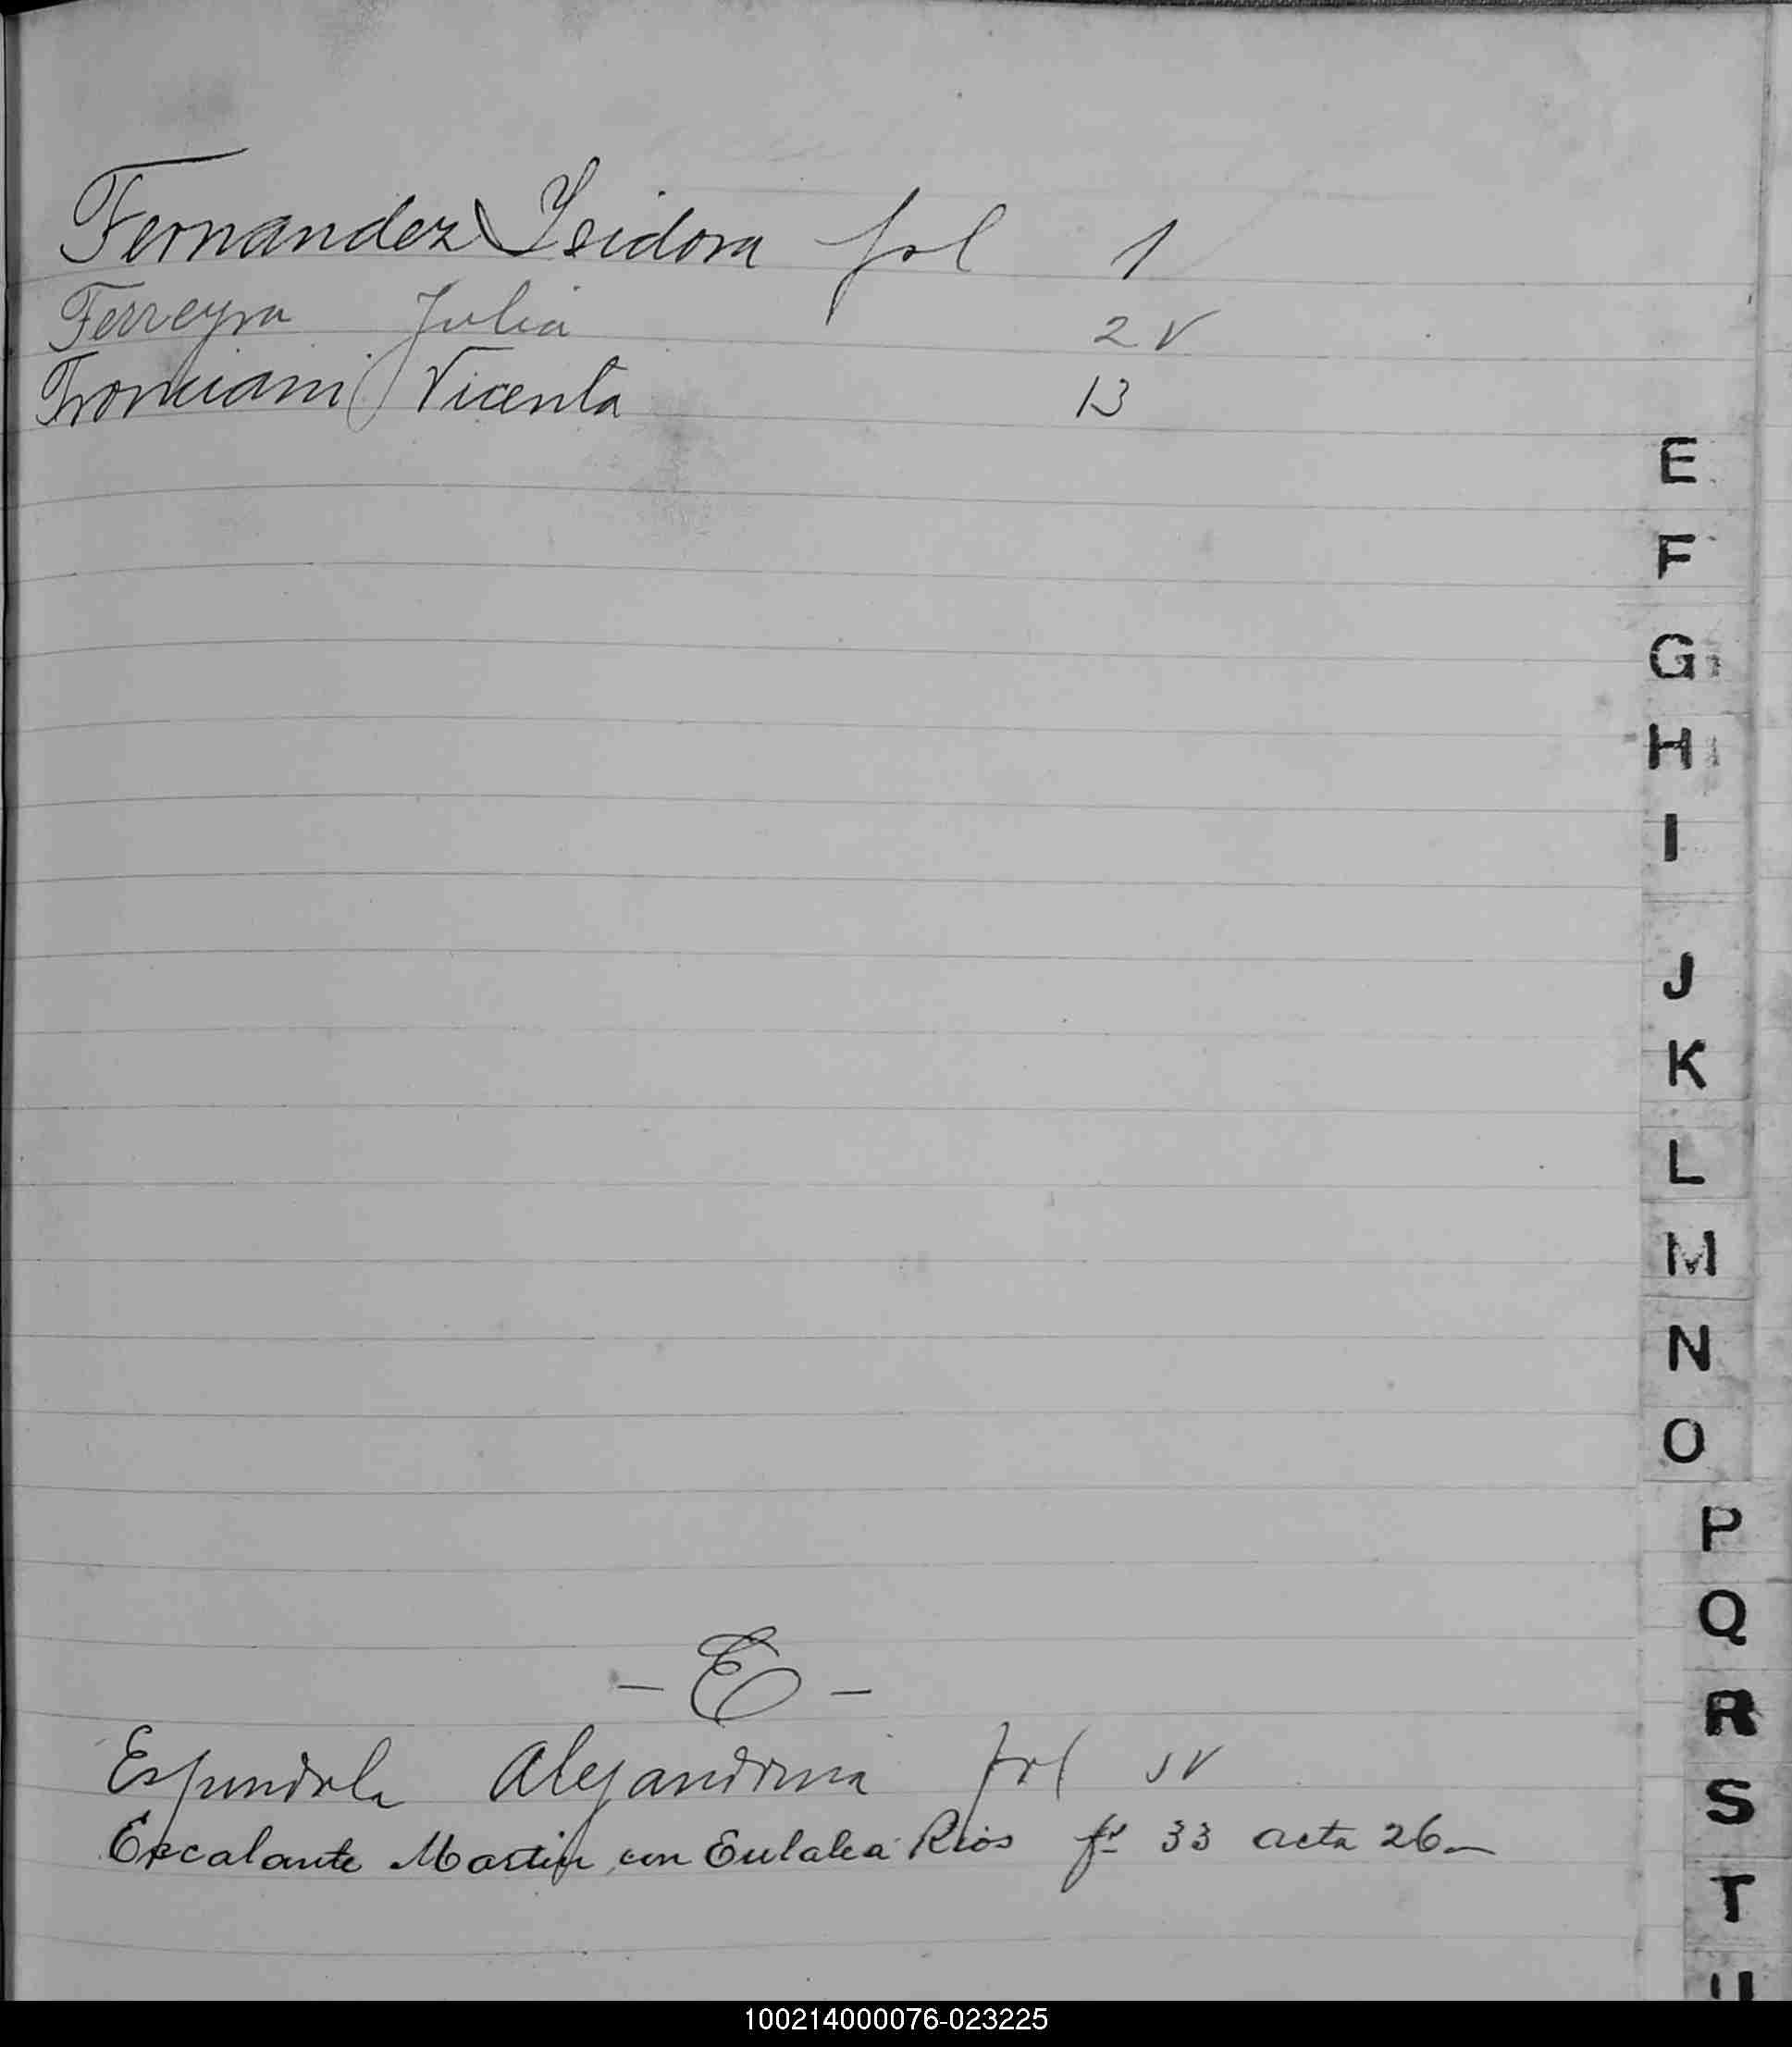 Fernandez Ysidora fol 1
Ferreyra Julia 2 v
Vicenta 13
E
F
G
H
I
J
K
L
M
N
O
P
Q
R
S
T
U
- E -
Espindola Alejandrina fol v
Escalante Martin con Eulalea Rios fº 33 acta 26-
100214000076-023225